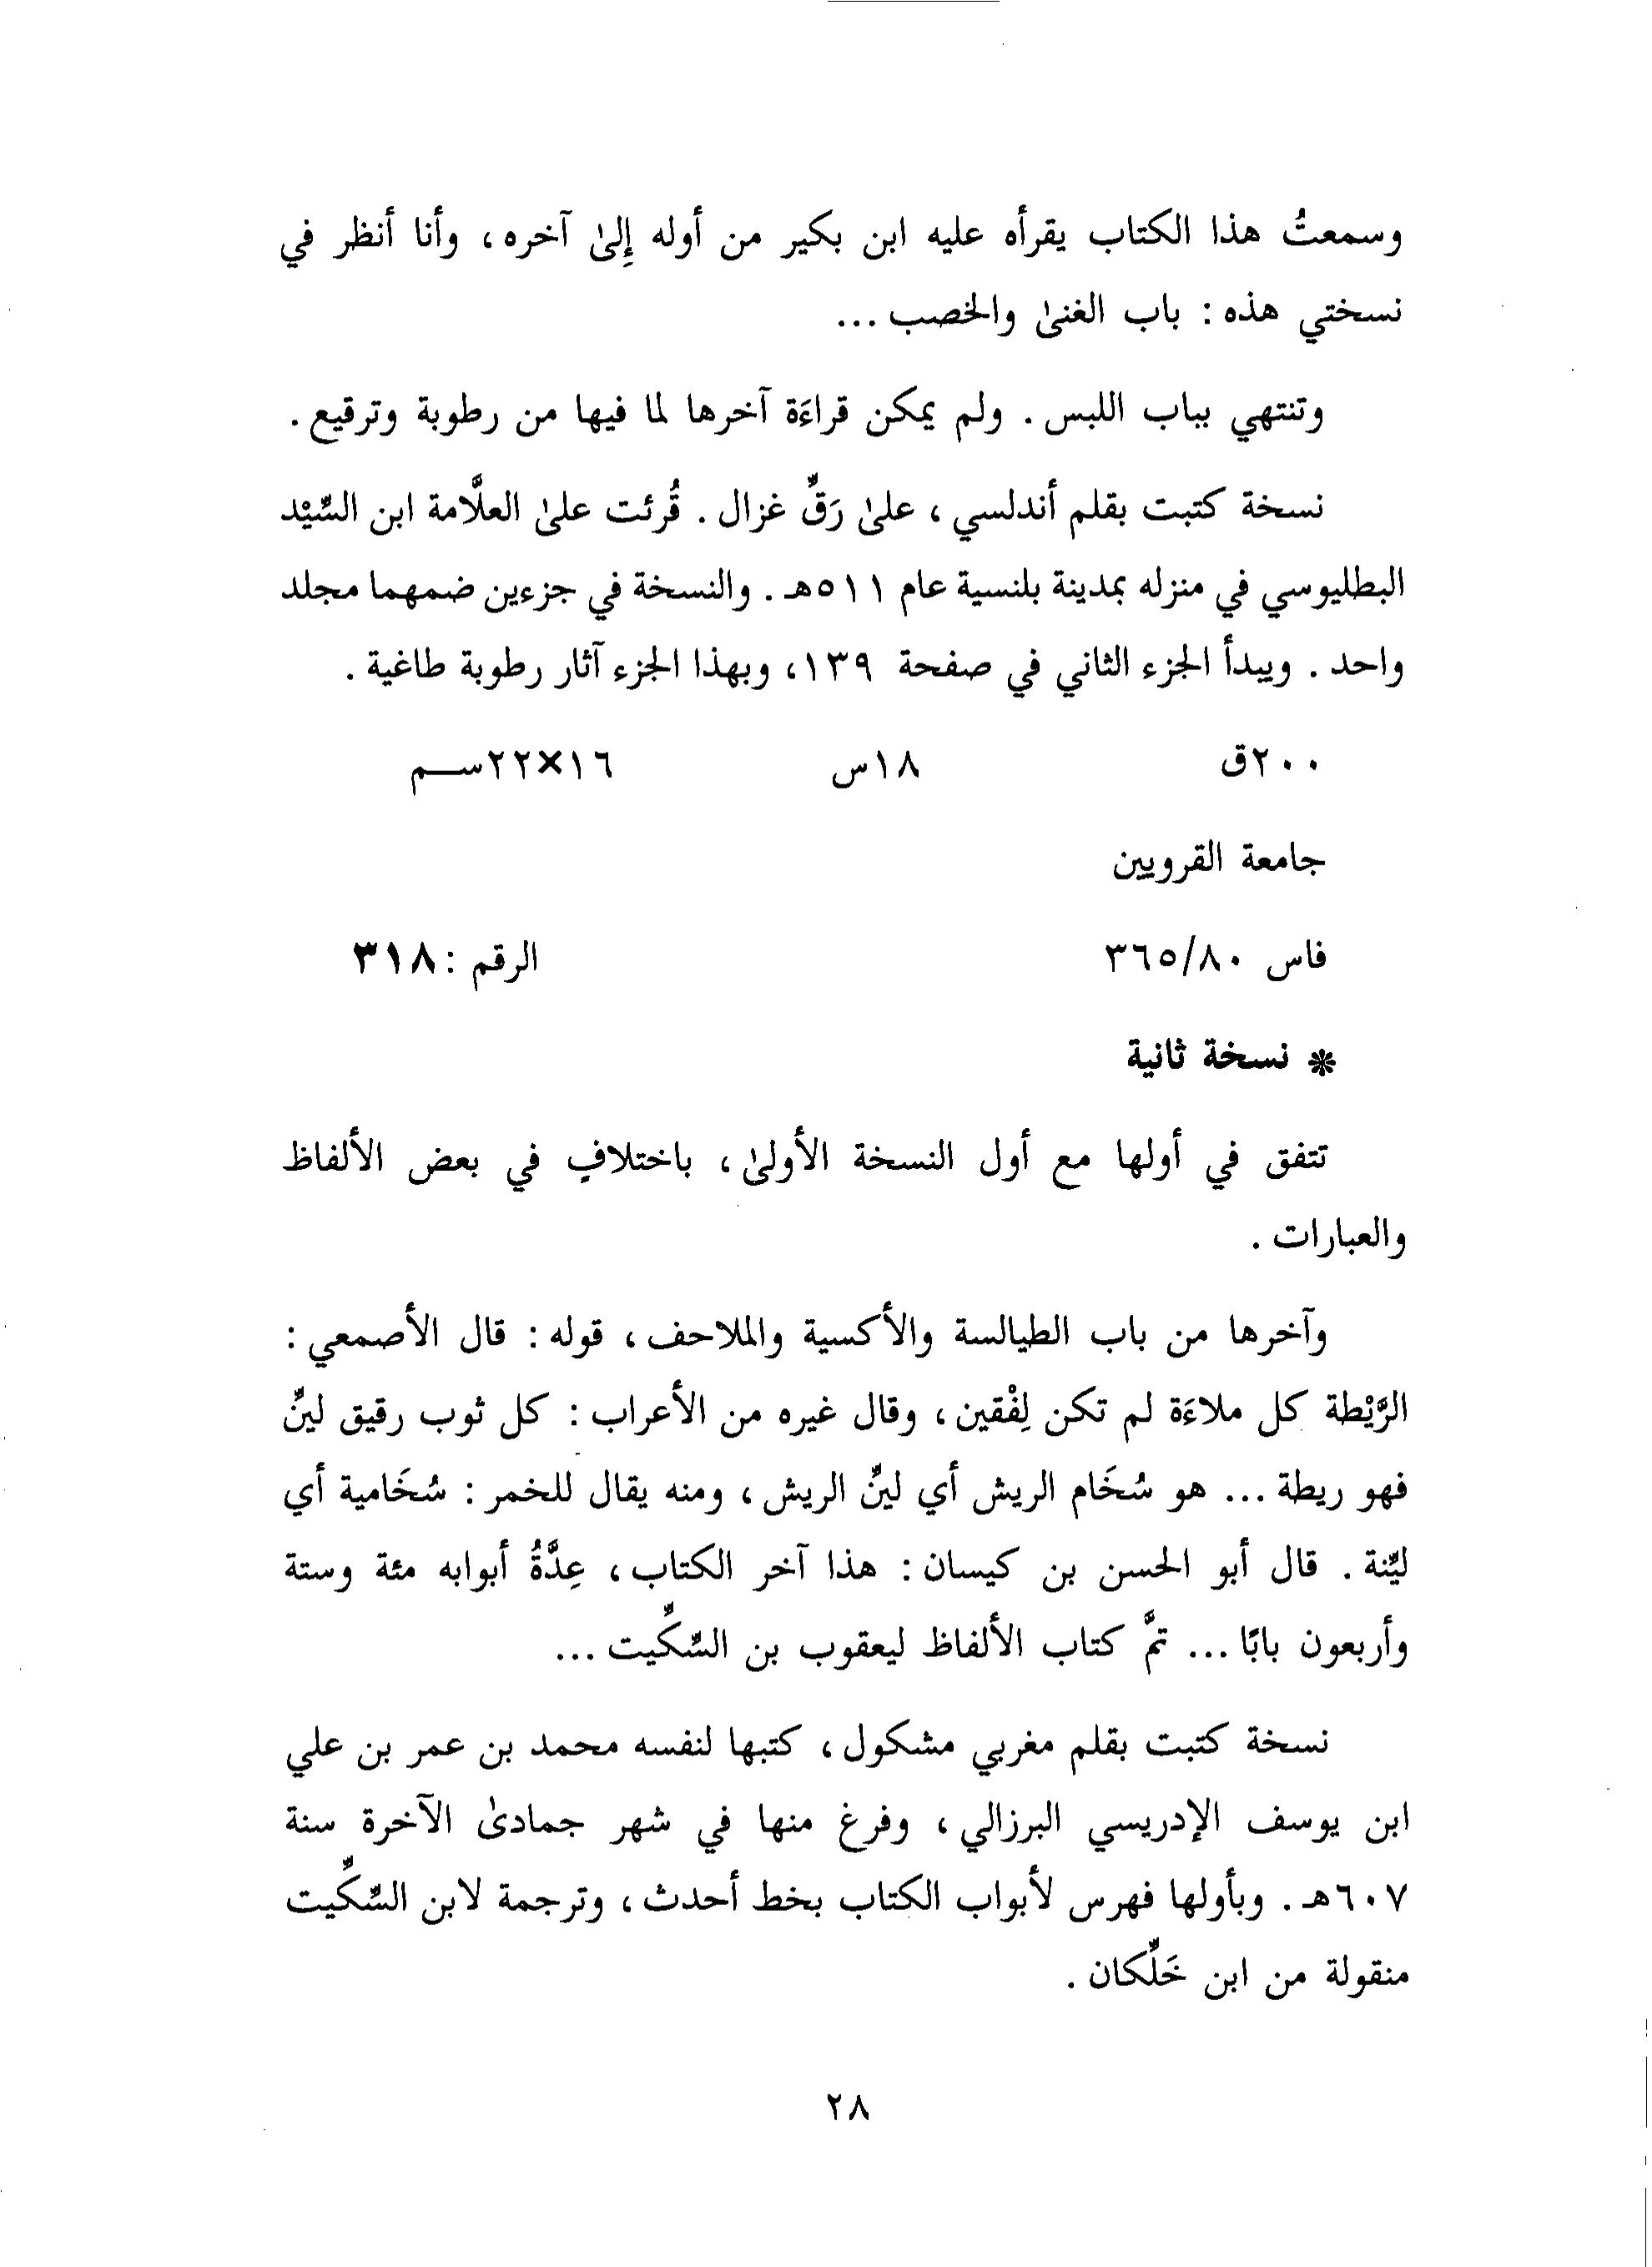 وسمعتُ هذا الكتاب يقرأه عليه ابن بكير من أوله إِلىٰ آخره ، وأنا أنظر في
نسختي هذه : باب الغنىٰ والخصب ...
وتنتهي بباب اللبس . ولم يمكن قراءَة آخرها لما فيها من رطوبة وترقيع .
نسخة كتبت بقلم أندلسي ، علىٰ رَقِّ غزال . قُرئت علىٰ العلَّامة ابن السِّيْد
البطليوسي في منزله بمدينة بلنسية عام ٥١١هـ . والنسخة في جزءين ضمهما مجلد
واحد . ويبدأ الجزء الثاني في صفحة ١٣٩ ، وبهذا الجزء آثار رطوبة طاغية .
٢٠٠ق ١٨س ١٦×٢٢سـم
جامعة القرويين
فاس ٣٦٥/٨٠ الرقم : ٣١٨
* نسخة ثانية
تتفق في أولها مع أول النسخة الأولىٰ ، باختلافٍ في بعض الألفاظ
والعبارات .
وآخرها من باب الطيالسة والأكسية والملاحف ، قوله : قال الأصمعي :
الرَّيْطة كل ملاءَة لم تكن لِفْقين ، وقال غيره من الأعراب : كل ثوب رقيق ليِّن
فهو ريطة ... هو سُخَام الريش أي ليِّن الريش ، ومنه يقال للخمر : سُخَامية أي
ليِّنة . قال أبو الحسن بن كيسان : هذا آخر الكتاب ، عِدَّةُ أبوابه مئة وستة
وأربعون بابًا ... تمَّ كتاب الألفاظ ليعقوب بن السِّكِّيت ...
نسخة كتبت بقلم مغربي مشكول ، كتبها لنفسه محمد بن عمر بن علي
ابن يوسف الإدريسي البرزالي ، وفرغ منها في شهر جمادىٰ الآخرة سنة
٦٠٧هـ . وبأولها فهرس لأبواب الكتاب بخط أحدث ، وترجمة لابن السِّكِّيت
منقولة من ابن خَلِّكان .
٢٨